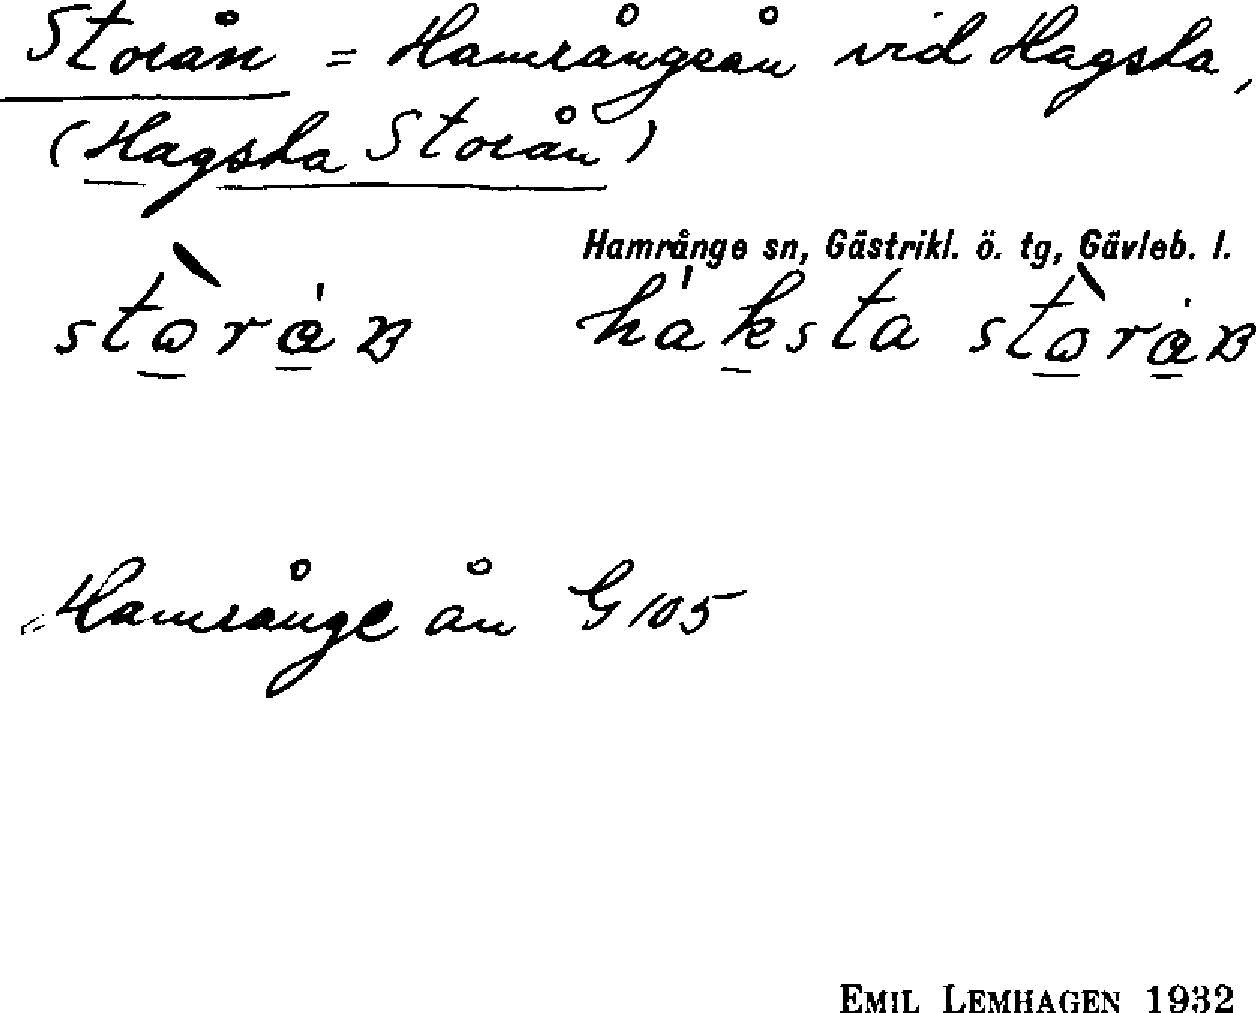 Storån = Hamrångeån vid Hagsta,
(Hagsta Storån)
Hamrånge sn, Gästrikl. ö. tg, Gävleb. l.
= Hamrånge ån G 105
EMIL LEMHAGEN 1932